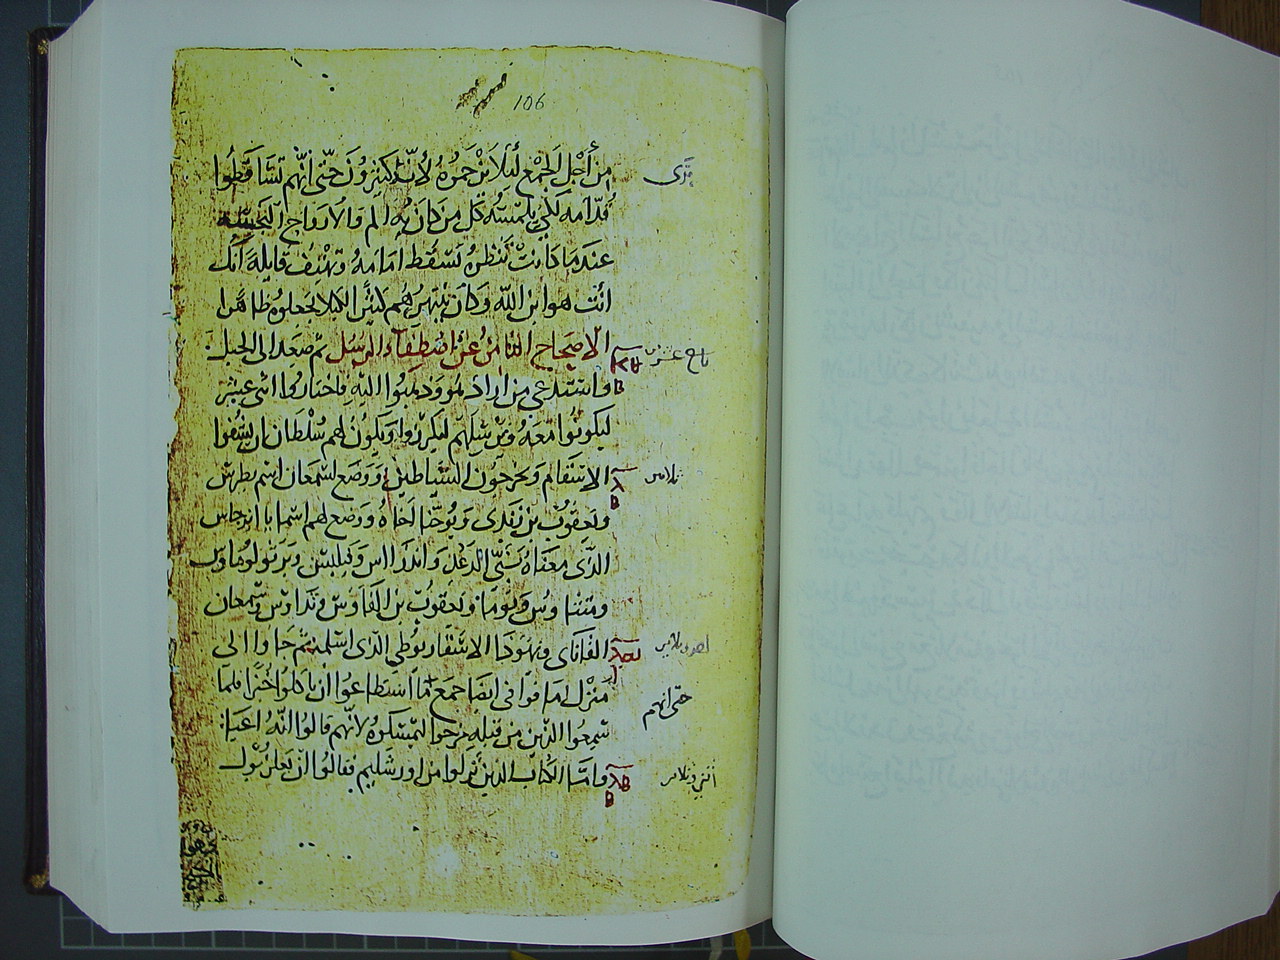 106
من أجل الجمع ليلا يزحمره لانه كثيرون حتى انهم تساقطوا
قدامه لكي يلمسه كل من كان به الم والارواح النجسة
عندما كانت تنظره تسقط امامه وتهتف قايلة أنك
انت هو ابن الله وكان ينتهرهم كثيرا لكيلا يجعلوه ظاهرا
الاصحاح الثامن عن اصطفآء الرسل ثم صعد الى الجبل
واستدعي من اراد هو وذهبوا اليه فاختار اثنى عشر
ليكونوا معه ويرسلهم ليكرزوا ويكون لهم سلطان ان يشفوا
الاسقام ويخرجون الشياطين ووضع لسمعان اسم بطرس
ويعقوب بن زبدى ويوحنا اخاه ووضع لهم اسما باانرجاس
الذى معناه بني الرعد واندراس وفيلبس وبرتولوماوس
ومتى وتوما ويعقوب بن الفاوس وتداوس وسمعان
القاناى ويهودا الاسخريوطي الذى اسلمه ثم جاوا الى
منزل فوافى ايضا جمع ما استطاعوا ان ياكلوا خبزا فلما
سمعوا الذين من قبله خرجوا ليمسكوه لانهم قالوا انه
واما الكتاب الذين نزلوا من اورشليم فقالوا ان بعلزبول
ثلاثين
احد وثلاثين
حتى انهم
اثنى وثلاثين